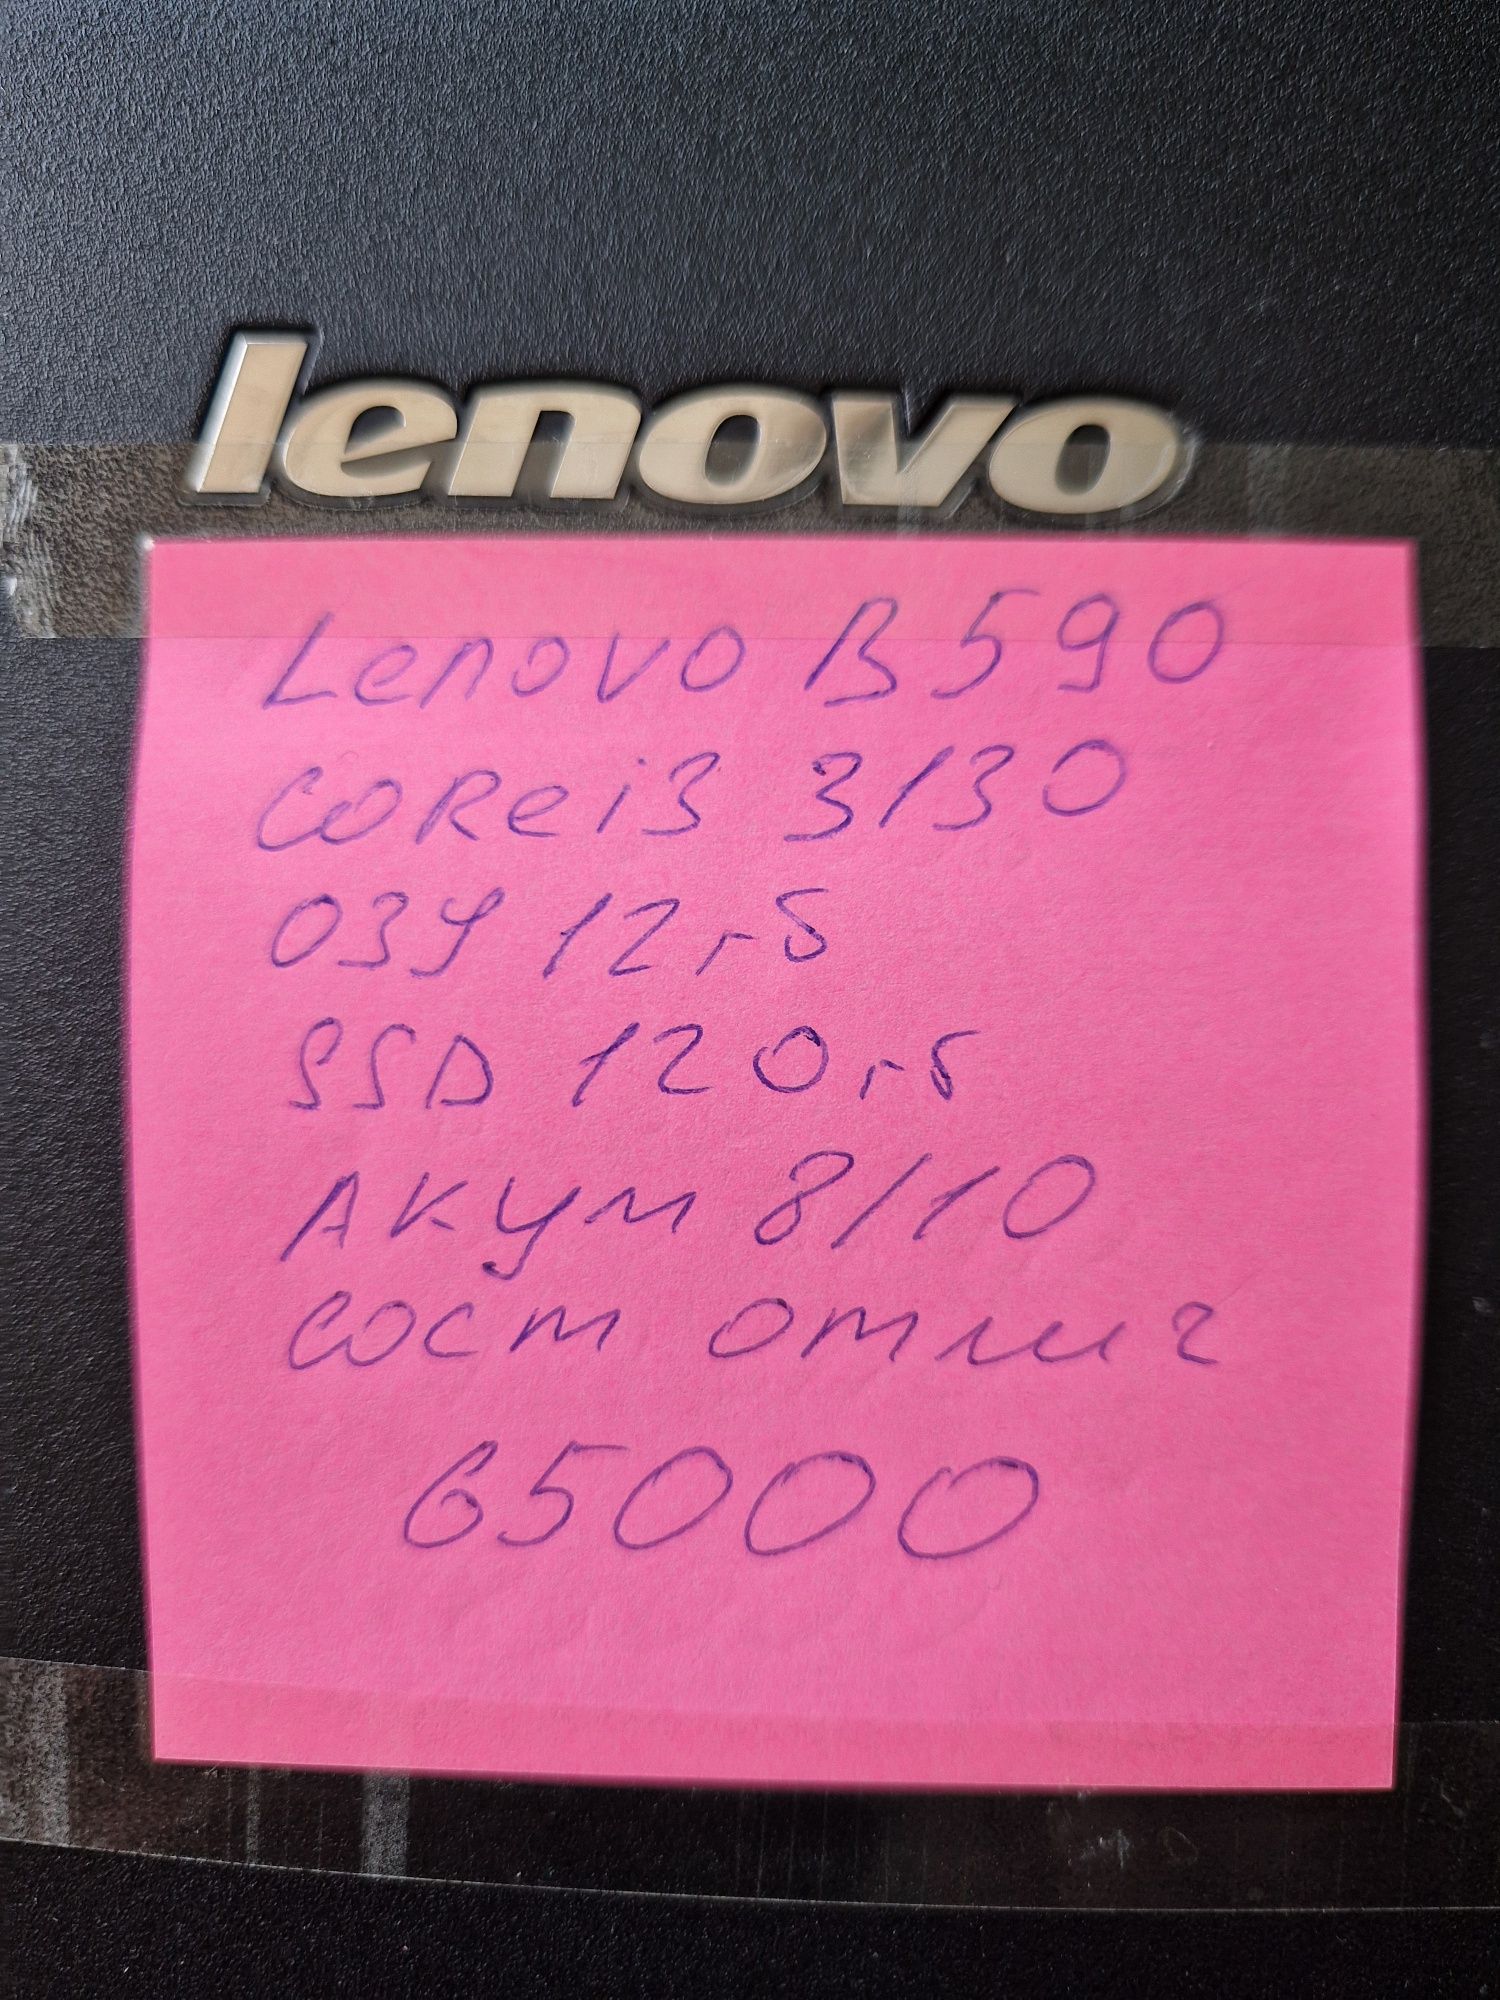 lenovo
Lenovo B590
CORei3 3130
ОЗУ 12гб
SSD 120гб
Акум 8/10
сост отлич
65000